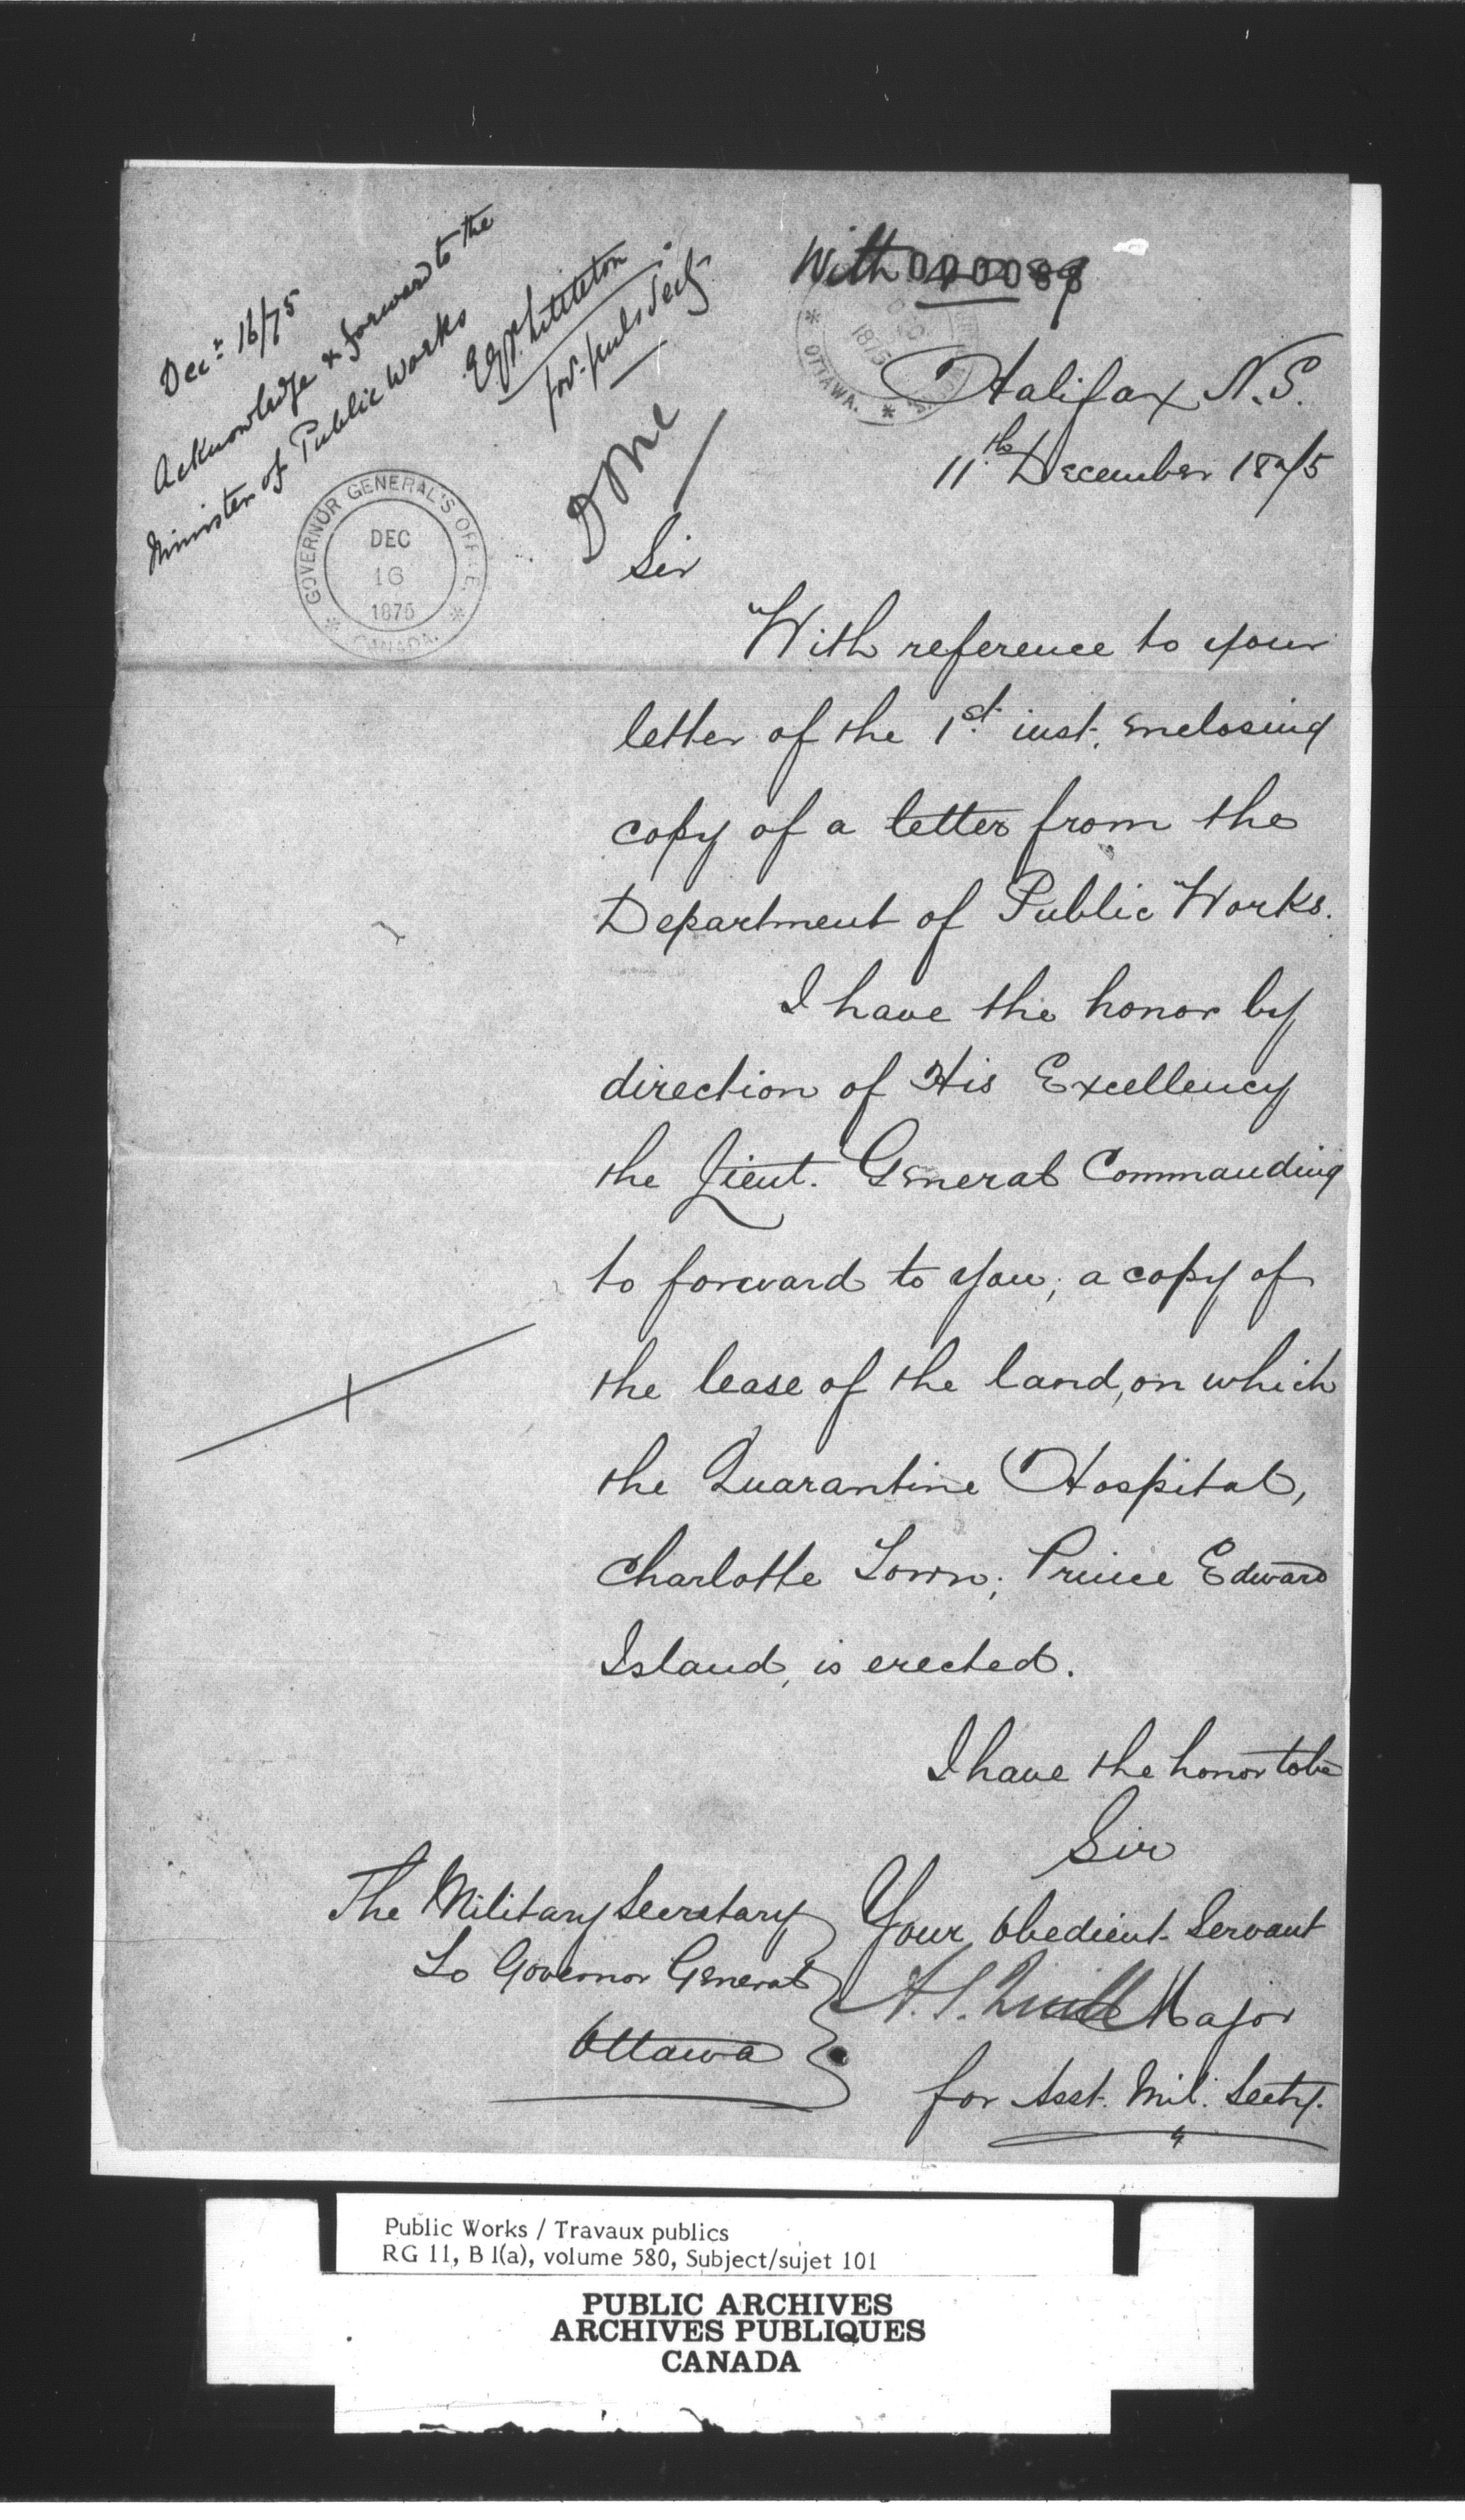 Decr 16/75
Acknowledge & forward to the
Minister of Public Works
Littleton
for
Done
GOVERNOR GENERAL'S OFFICE.
DEC
16
1875
CANADA.
With
OTTAWA.
1875
Halifax N.S.
11th December 1875
Sir
With reference to your
letter of the 1st inst. enclosing
copy of a letter from the
Department of Public Works.
I have the honor by
direction of His Excellency
the Lieut. General Commanding
to forward to you, a copy of
the lease of the land, on which
the Quarantine Hospital,
Charlotte Town, Prince Edward
Island, is erected.
I have the honor to be
Sir
Your Obedient Servant
Major
for Asst. Mil. Secty.
The Military Secretary
To Governor General
Ottawa
Public Works / Travaux publics
RG 11, B 1(a), volume 580, Subject/sujet 101
PUBLIC ARCHIVES
ARCHIVES PUBLIQUES
CANADA